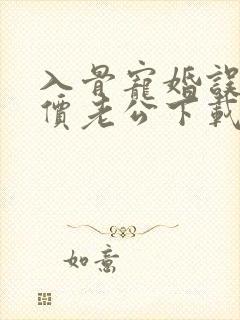 入骨寵婚誤
價老公下載
如意